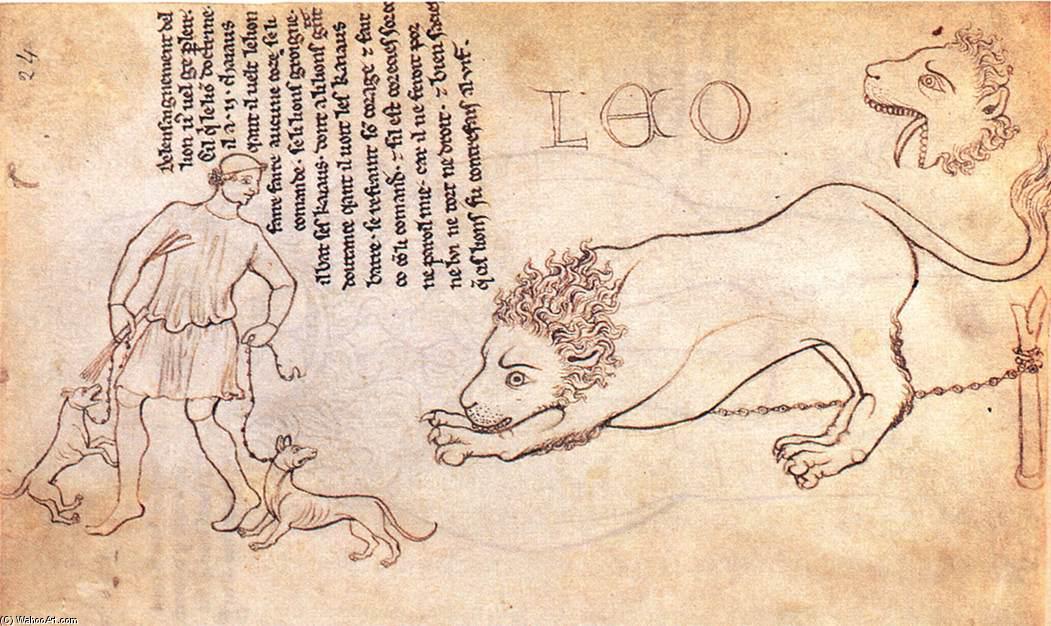 24
Del ensaignement del
lion ū uel ge pleir.
Cil q̄ le liō doctrine.
il a .ij. chaiaus
qant il uelt le lion
faire faire aucune coze. se li
comande. se li lions groigne.
il bat ses kaiaus. dont a li lions grāt
doutance qant il uoit les kaiaus
batre. se refraint sō corage ⁊ fait
co cō li comand. ⁊ sil est corecies sor co
ne paroil mie. car il ne feroit por
nelui ne tort ne droit. ⁊ bien sacies
q̄ cis lions fu contrefais al vif.
LEO
(C) WahooArt.com